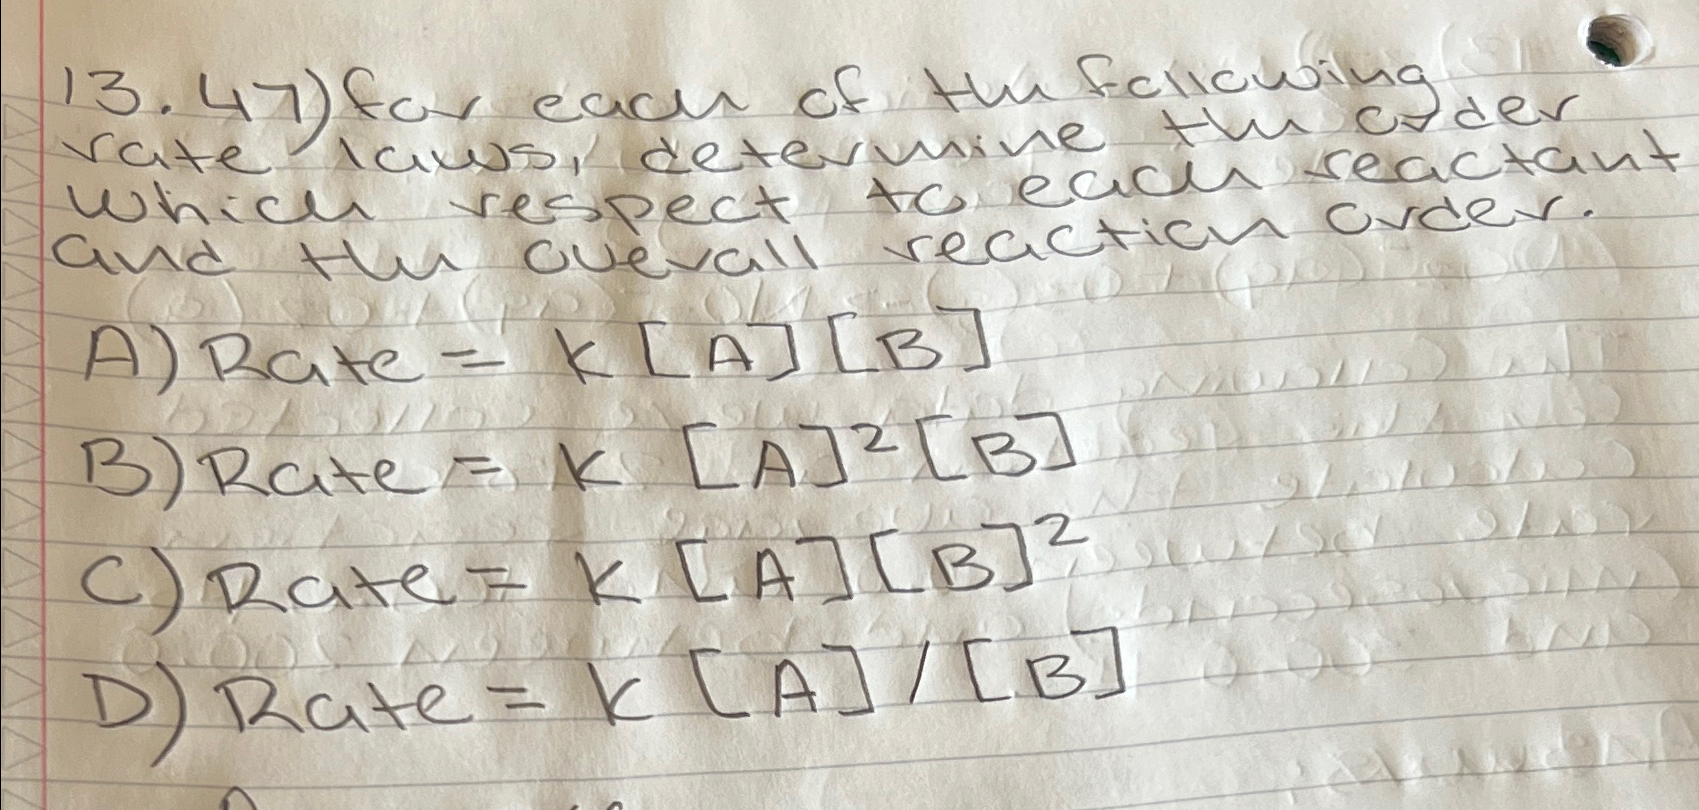 13.47) for each of the following
rate laws, determine the order
which respect to each reactant
and the overall reaction order.
A) Rate = K [A][B]
B) Rate = K [A]² [B]
C) Rate = K [A][B]²
D) Rate = K [A] / [B]